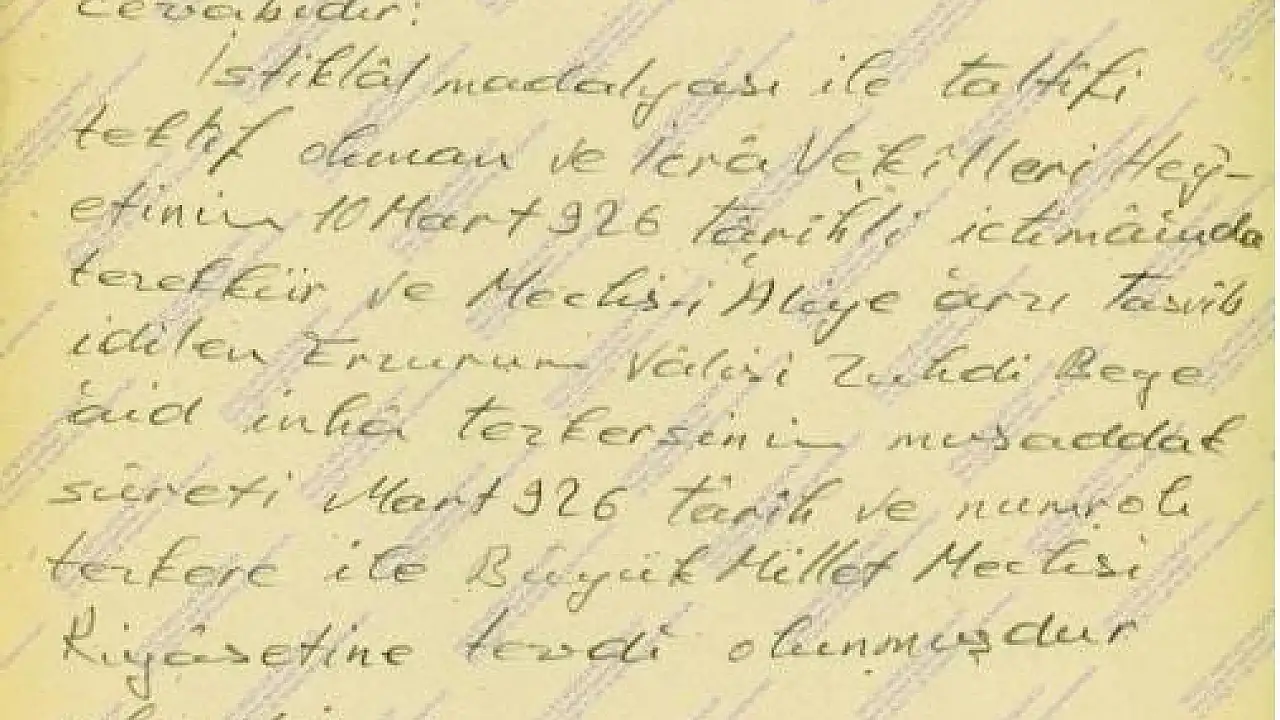 Cevabıdır:
İstiklâl madalyası ile taltifi
teklif olunan ve İcrâ Vekilleri Hey-
etinin 10 Mart 926 târihli ictimâında
tezekkür ve Meclis-i Âliye arzı tasvib
idilen Erzurum Vâlisi Zuhdi Beye
âid inhâ tezkersinin musaddak
sûreti Mart 926 târih ve numrolı
tezkere ile Büyük Millet Meclisi
Riyâsetine tevdi olunmuşdur